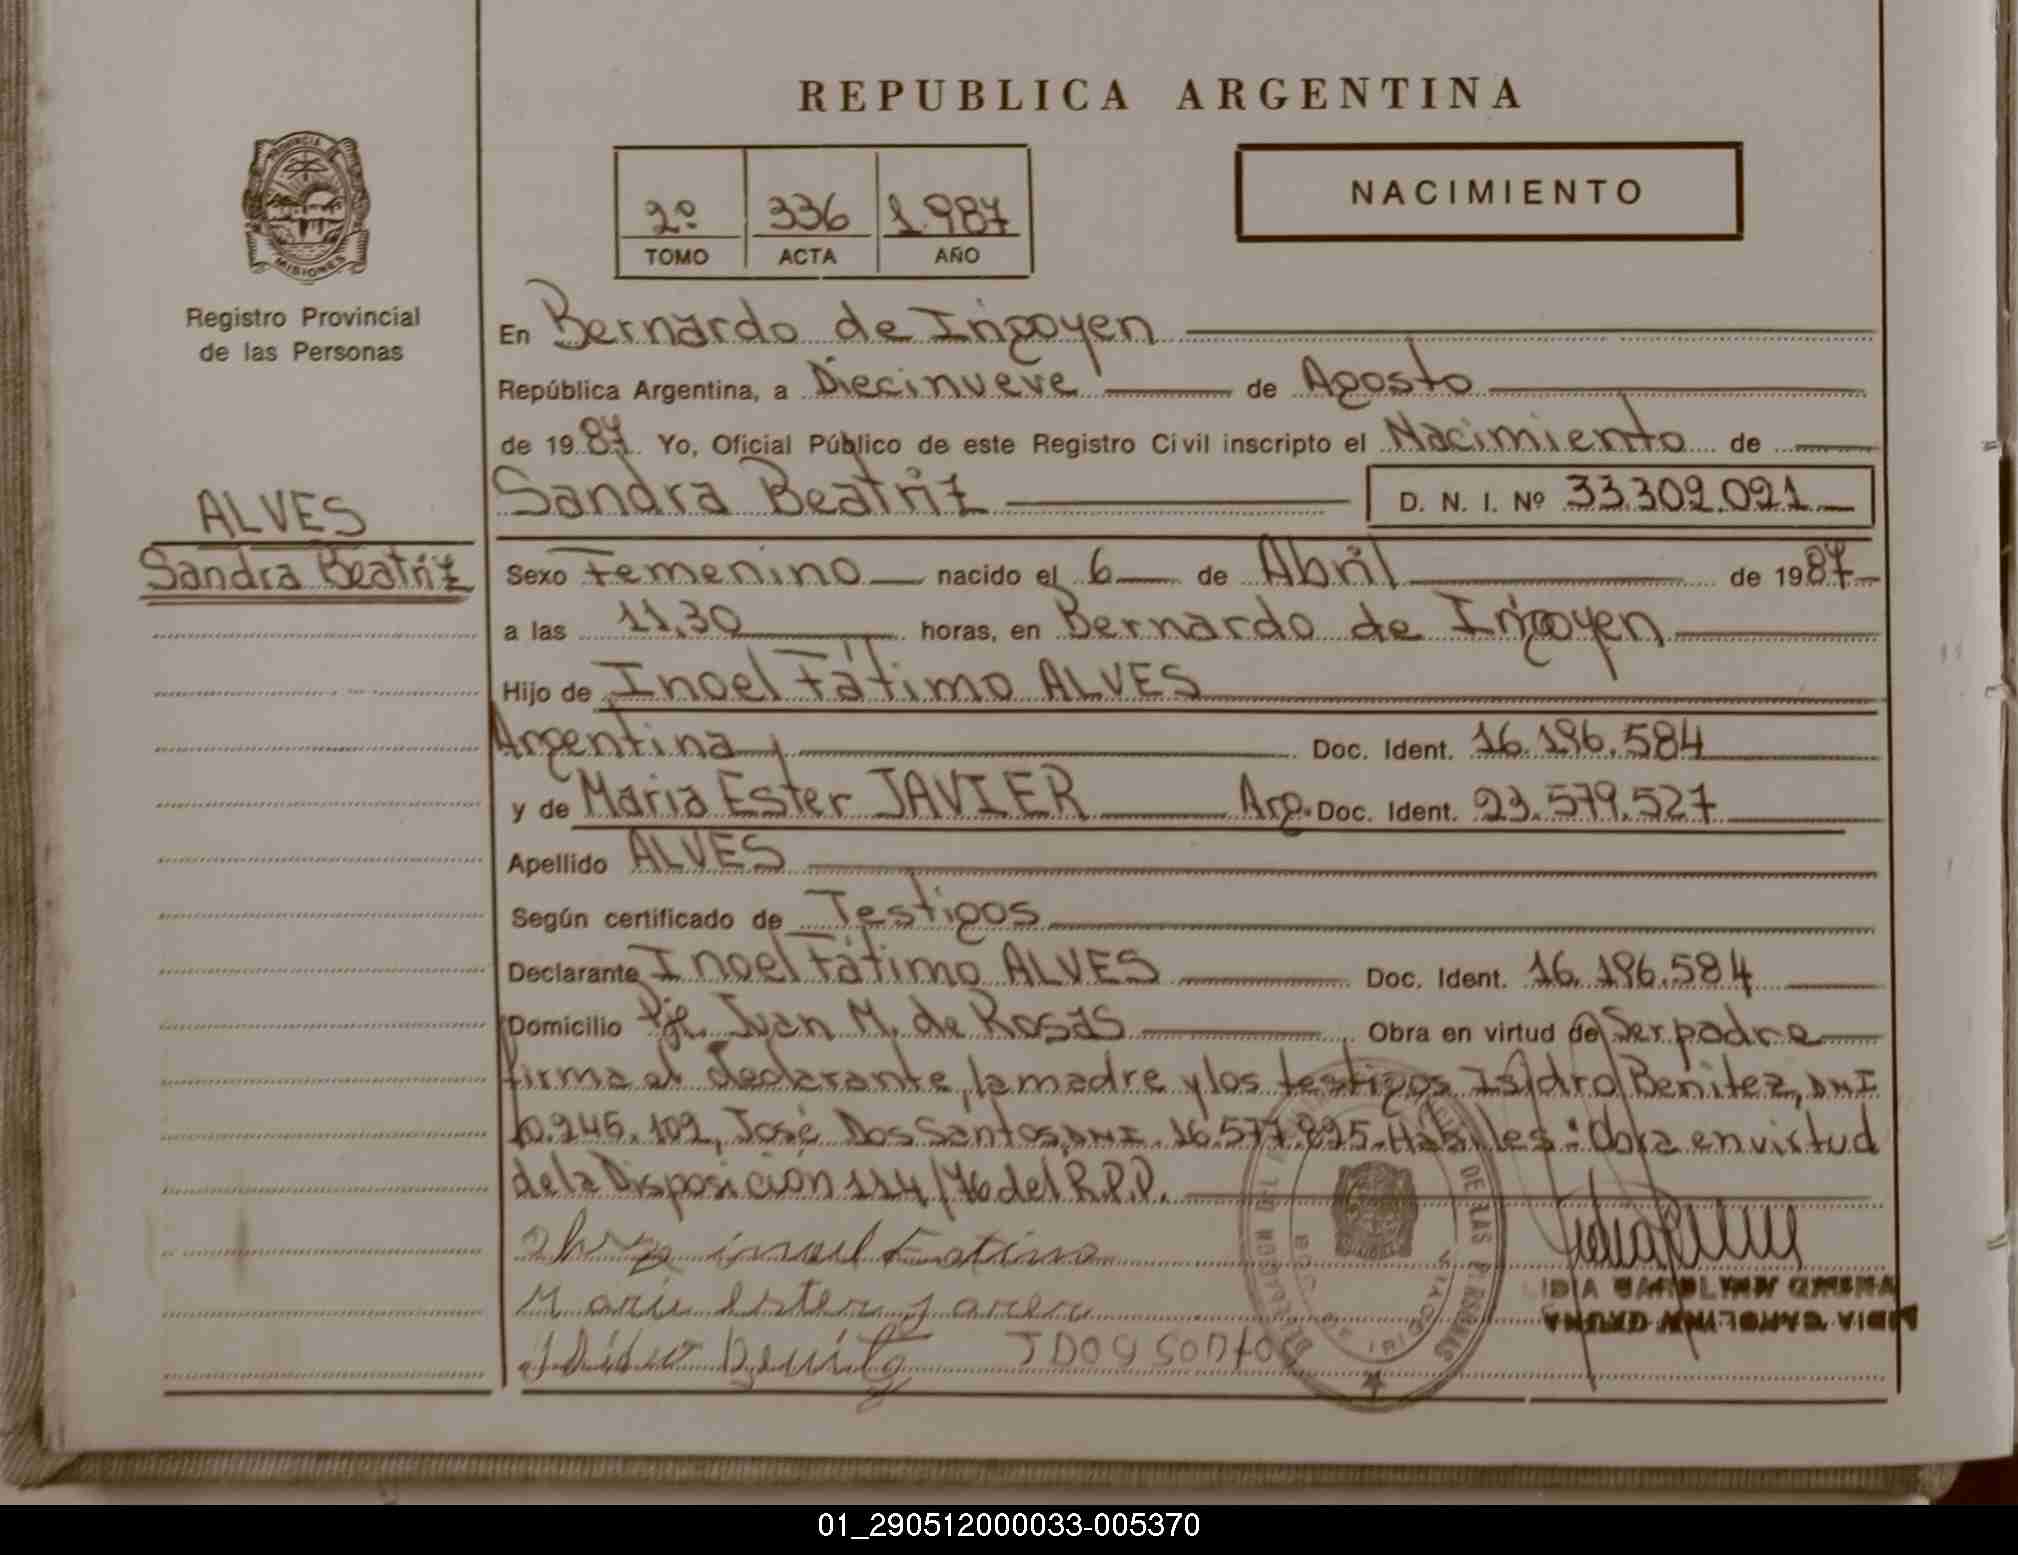 REPUBLICA ARGENTINA
PROVINCIA
MISIONES
Registro Provincial
de las Personas
2º 336 1.987
TOMO ACTA AÑO
NACIMIENTO
En Bernardo de Irigoyen
República Argentina, a Diecinueve de Agosto
de 1987 Yo, Oficial Público de este Registro Civil inscripto el Nacimiento de
Sandra Beatriz D. N. I. Nº 33.302.021
ALVES
Sandra Beatriz
Sexo Femenino nacido el 6 de Abril de 1987
a las 11,30 horas, en Bernardo de Irigoyen
Hijo de Inoel Fátimo ALVES
Argentina Doc. Ident. 16.196.584
y de Maria Ester JAVIER Arg. Doc. Ident. 23.579.527
Apellido ALVES
Según certificado de Testigos
Declarante Inoel Fátimo ALVES Doc. Ident. 16.196.584
Domicilio Pje. Juan M. de Rosas Obra en virtud de Ser padre
firma el declarante, la madre y los testigos Isidro Benitez, DNI
10.245.102, José Dos Santos, DNI. 16.577.825. Habiles: Obra en virtud
de la Disposición 114/76 del R.P.P.
Alves inoel Fatimo
Maria Ester Javier
Isidro Benitez J DOS SANTOS
DE LAS PERSONAS
LIDIA CAROLINA
01_290512000033-005370